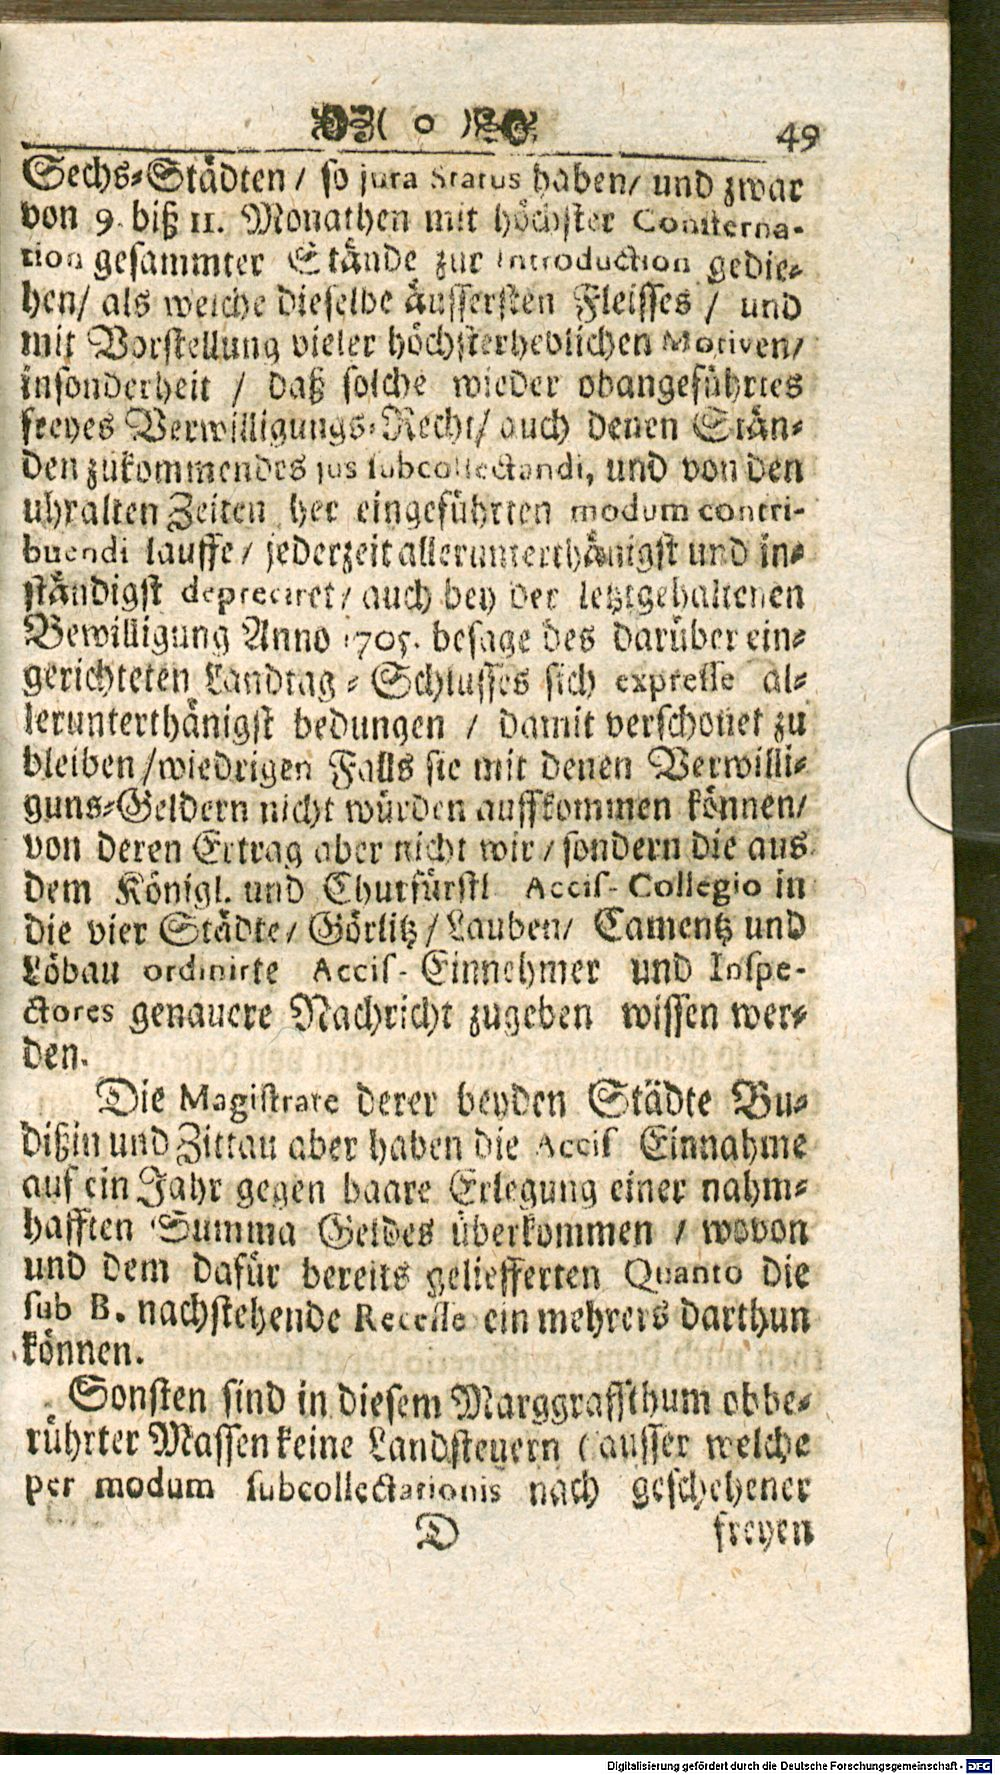 ( o ) 49
Sechs-Städten / so jura Status haben/ und zwar
von 9. biß 11. Monathen mit höchster Consterna-
tion gesammter Stände zur Introduction gedie-
hen/ als welche dieselbe äussersten Fleisses / und
mit Vorstellung vieler höchsterheblichen Motiven/
insonderheit / daß solche wieder obangeführtes
freyes Verwilligungs-Recht/ auch denen Stän-
den zukommendes jus subcollectandi, und von den
uhralten Zeiten her eingeführten modum contri-
buendi lauffe / jederzeit allerunterthänigst und in-
ständigst depreciret / auch bey der letztgehaltenen
Bewilligung Anno 1705. besage des darüber ein-
gerichteten Landtag-Schlusses sich expresse al-
lerunterthänigst bedungen / damit verschonet zu
bleiben /wiedrigen Falls sie mit denen Verwilli-
guns-Geldern nicht würden auffkommen können/
von deren Ertrag aber nicht wir / sondern die aus
dem Königl. und Churfürstl Accis-Collegio in
die vier Städte/ Görlitz / Lauben/ Camentz und
Löbau ordinirte Accis-Einnehmer und Inspe-
ctores genauere Nachricht zugeben wissen wer-
den.
Die Magistrate derer beyden Städte Bu-
dißin und Zittau aber haben die Accis Einnahme
auf ein Jahr gegen baare Erlegung einer nahm-
hafften Summa Geldes überkommen / wovon
und dem dafür bereits geliefferten Quanto die
sub B. nachstehende Recesse ein mehrers darthun
können.
Sonsten sind in diesem Marggraffthum obbe-
rührter Massen keine Landsteuern (ausser welche
per modum subcollectationis nach geschehener
D freyen
Digitalisierung gefördert durch die Deutsche Forschungsgemeinschaft - DFG